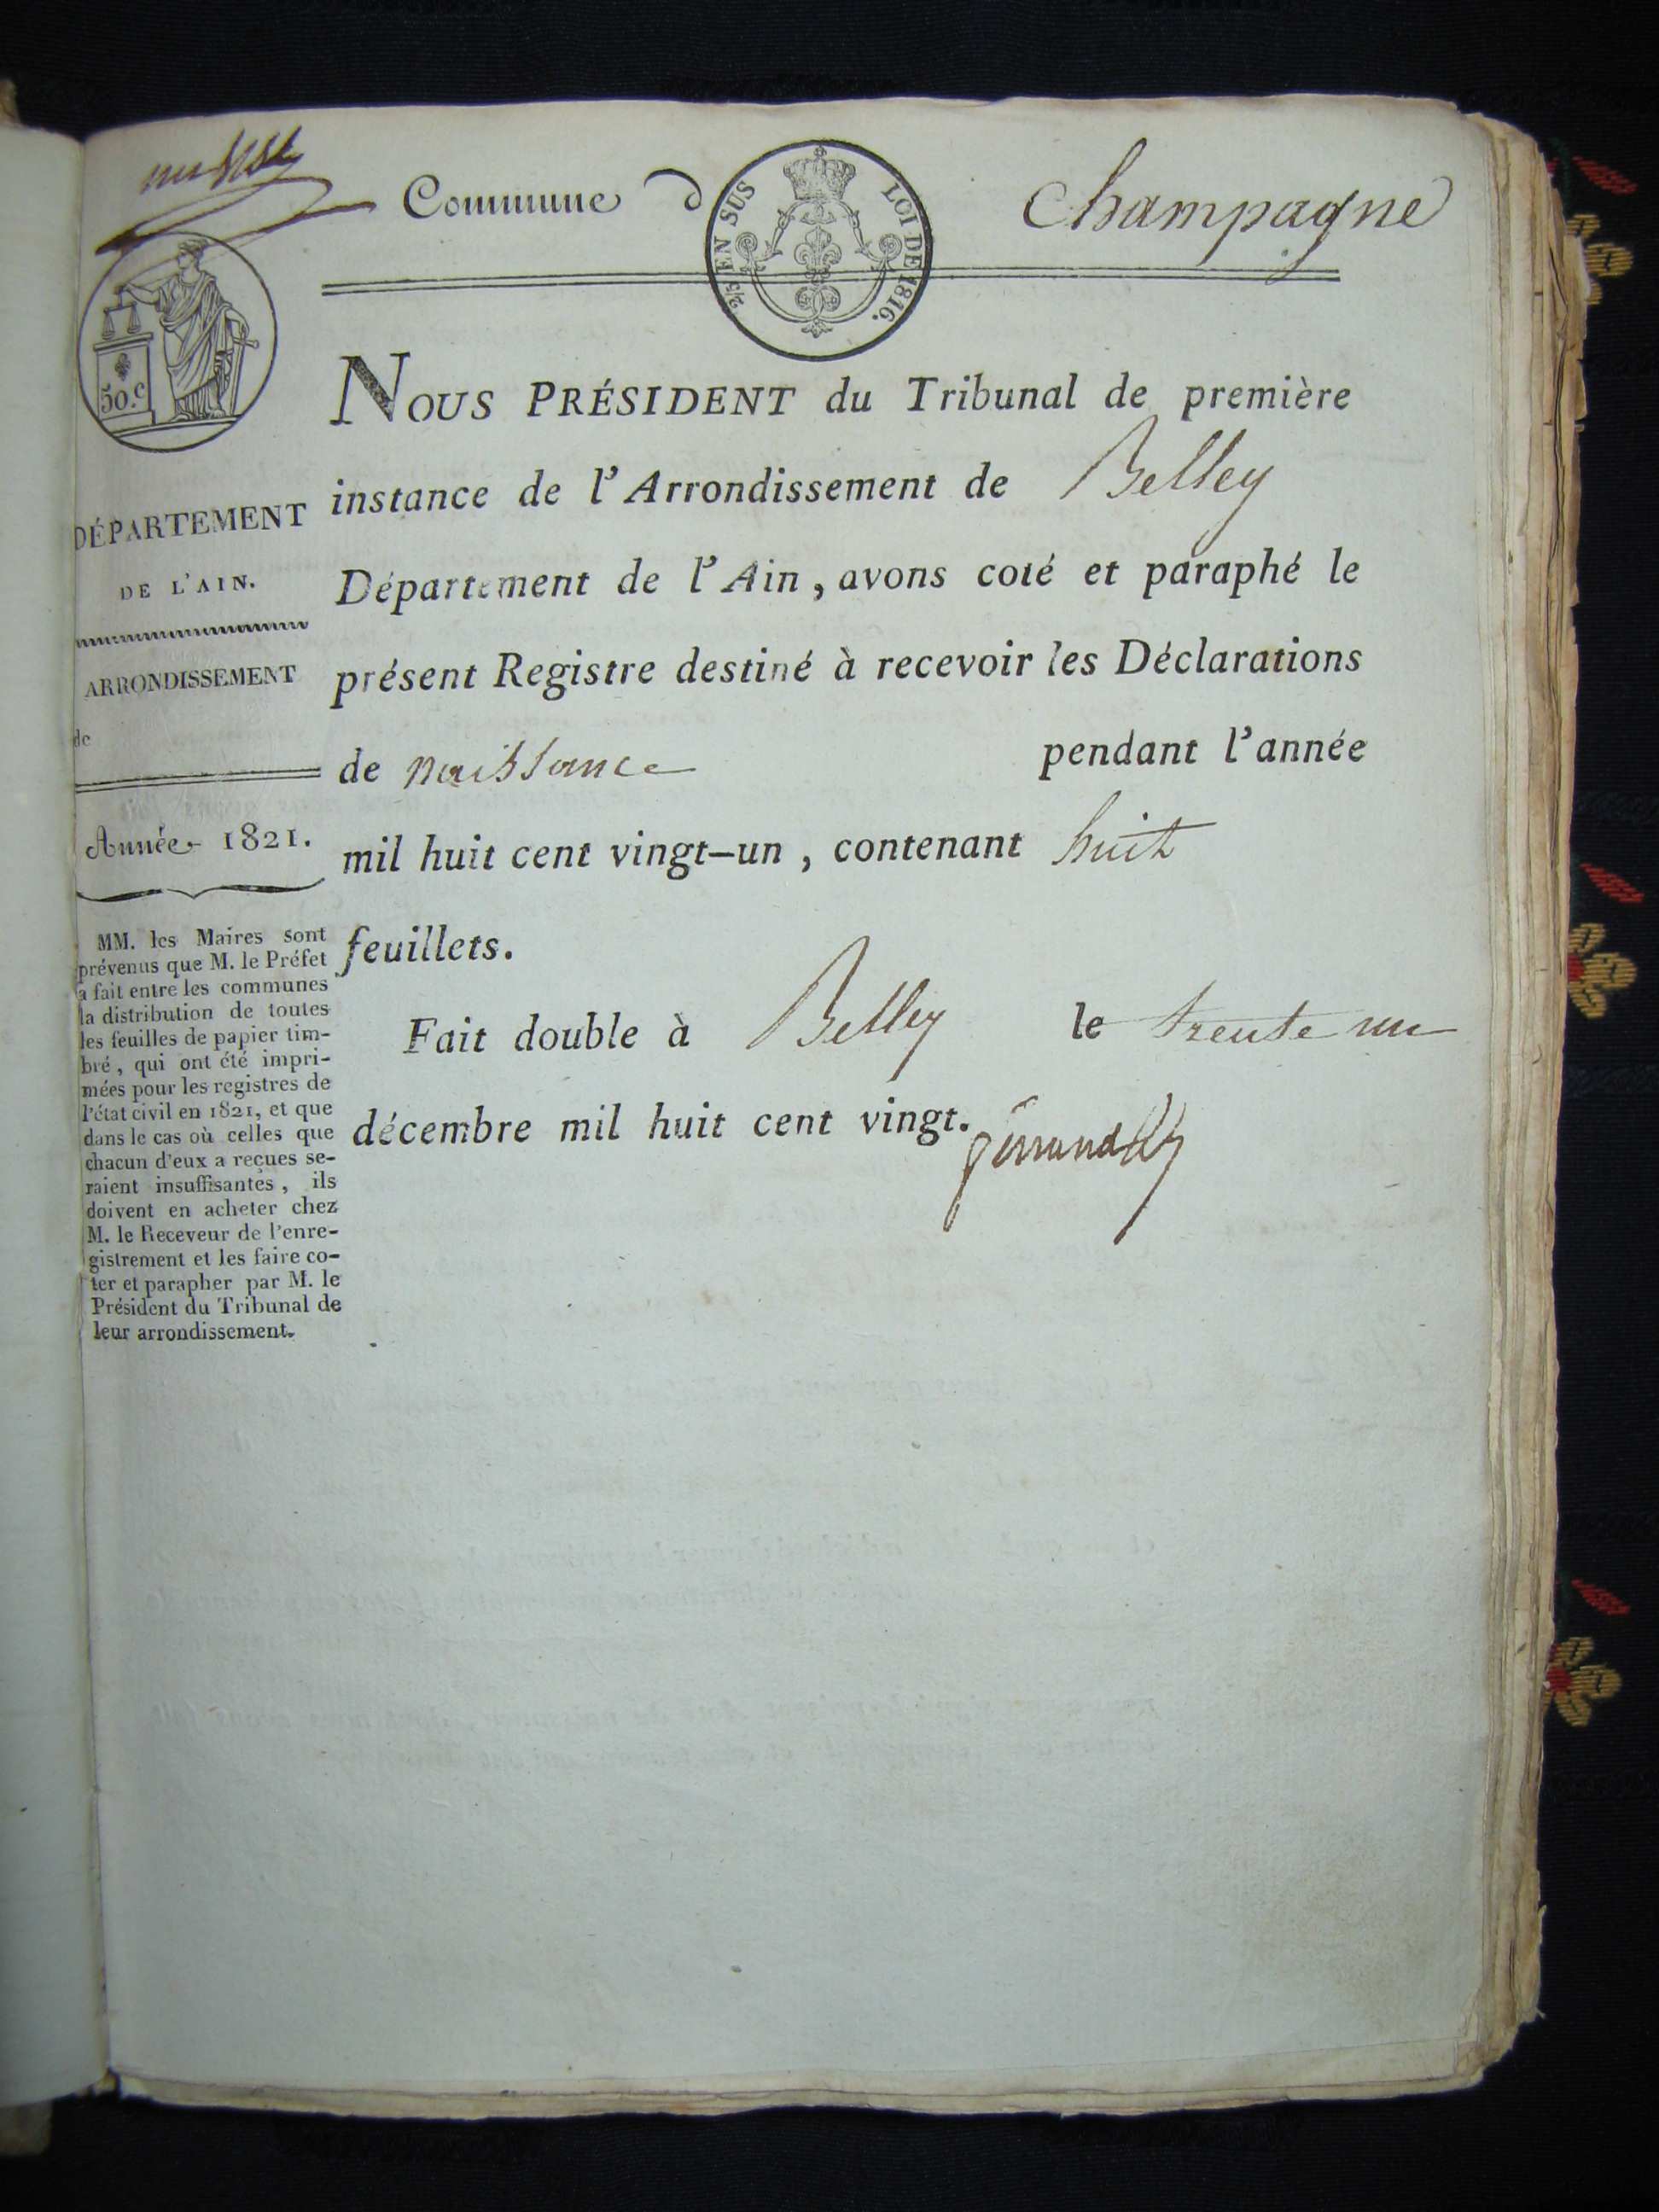 Commune d Champagne
2/5 EN SUS
LOI DE 1816.
50.c
DÉPARTEMENT
DE L'AIN.
ARRONDISSEMENT
de
Année 1821.
MM. les Maires sont
prévenus que M. le Préfet
a fait entre les communes
la distribution de toutes
les feuilles de papier tim-
bré, qui ont été impri-
mées pour les registres de
l'état civil en 1821, et que
dans le cas où celles que
chacun d'eux a reçues se-
raient insuffisantes, ils
doivent en acheter chez
M. le Receveur de l'enre-
gistrement et les faire co-
ter et parapher par M. le
Président du Tribunal de
leur arrondissement.
NOUS PRÉSIDENT du Tribunal de première
instance de l'Arrondissement de Belley
Département de l'Ain, avons coté et paraphé le
présent Registre destiné à recevoir les Déclarations
de naissance pendant l'année
mil huit cent vingt-un, contenant huit
feuillets.
Fait double à Belley le trente un
décembre mil huit cent vingt.